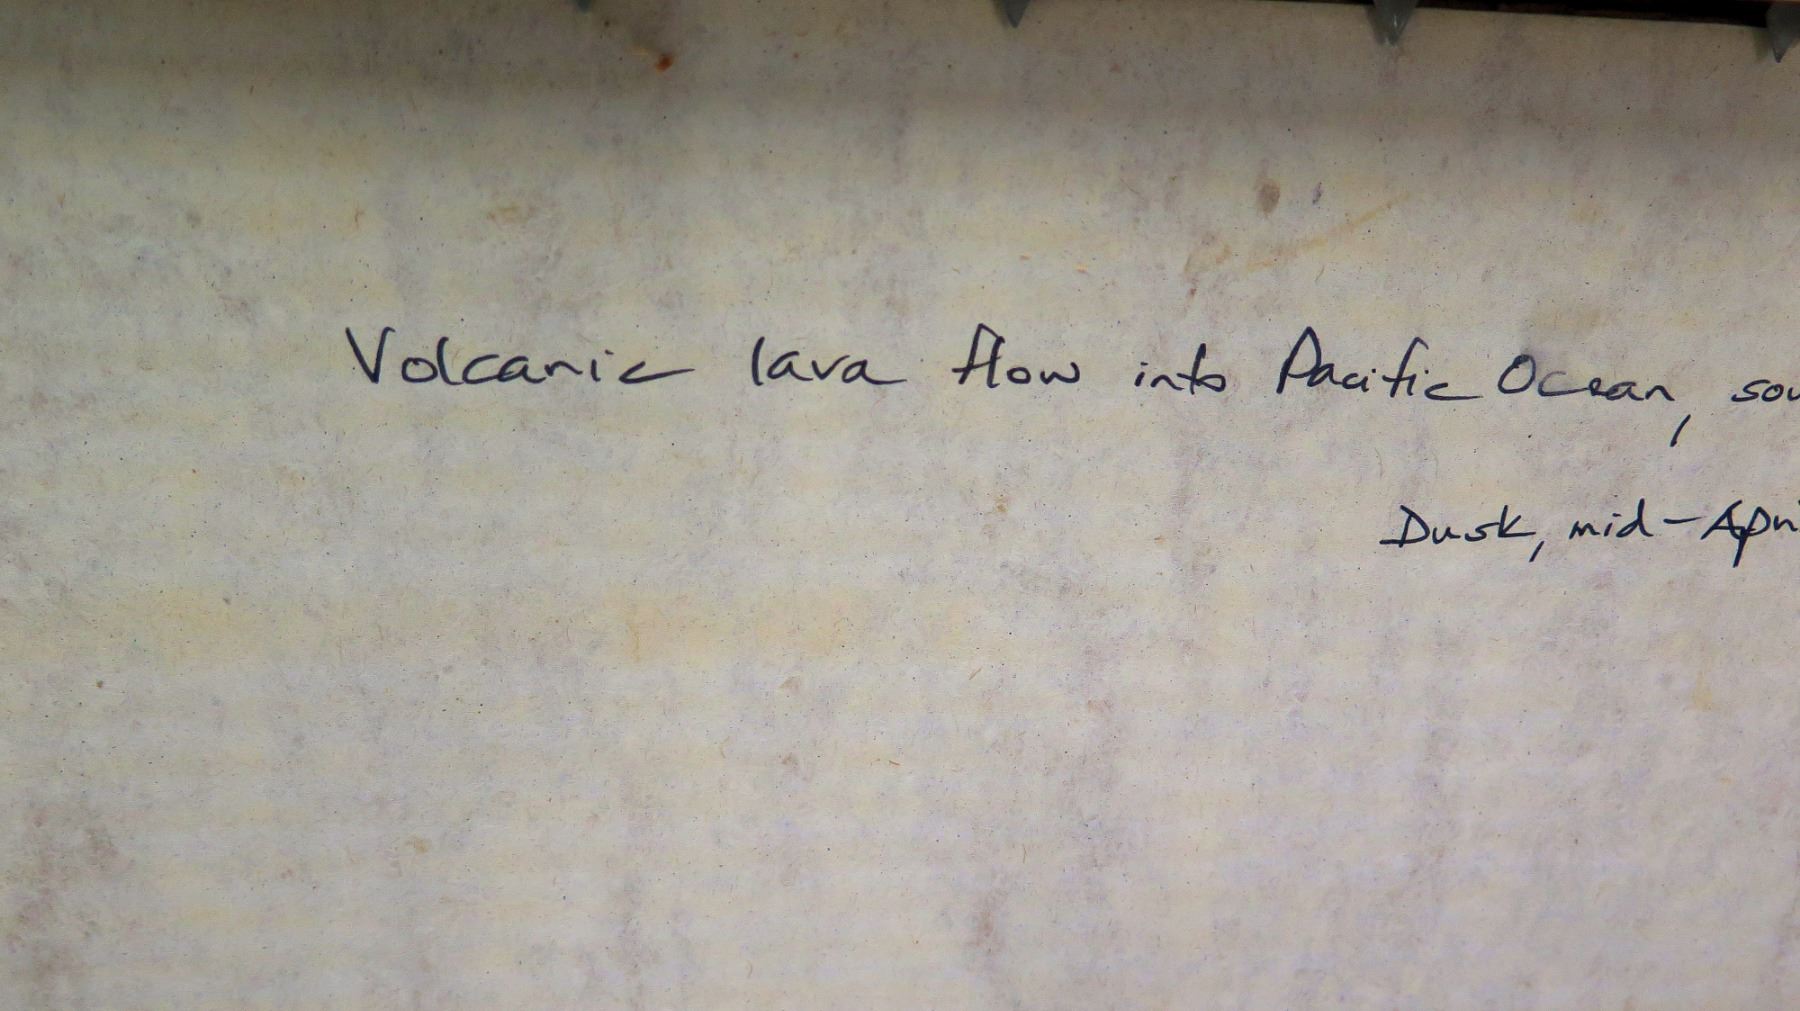 Volcanic lava flow into Pacific Ocean, sou
Dusk, mid-Apri